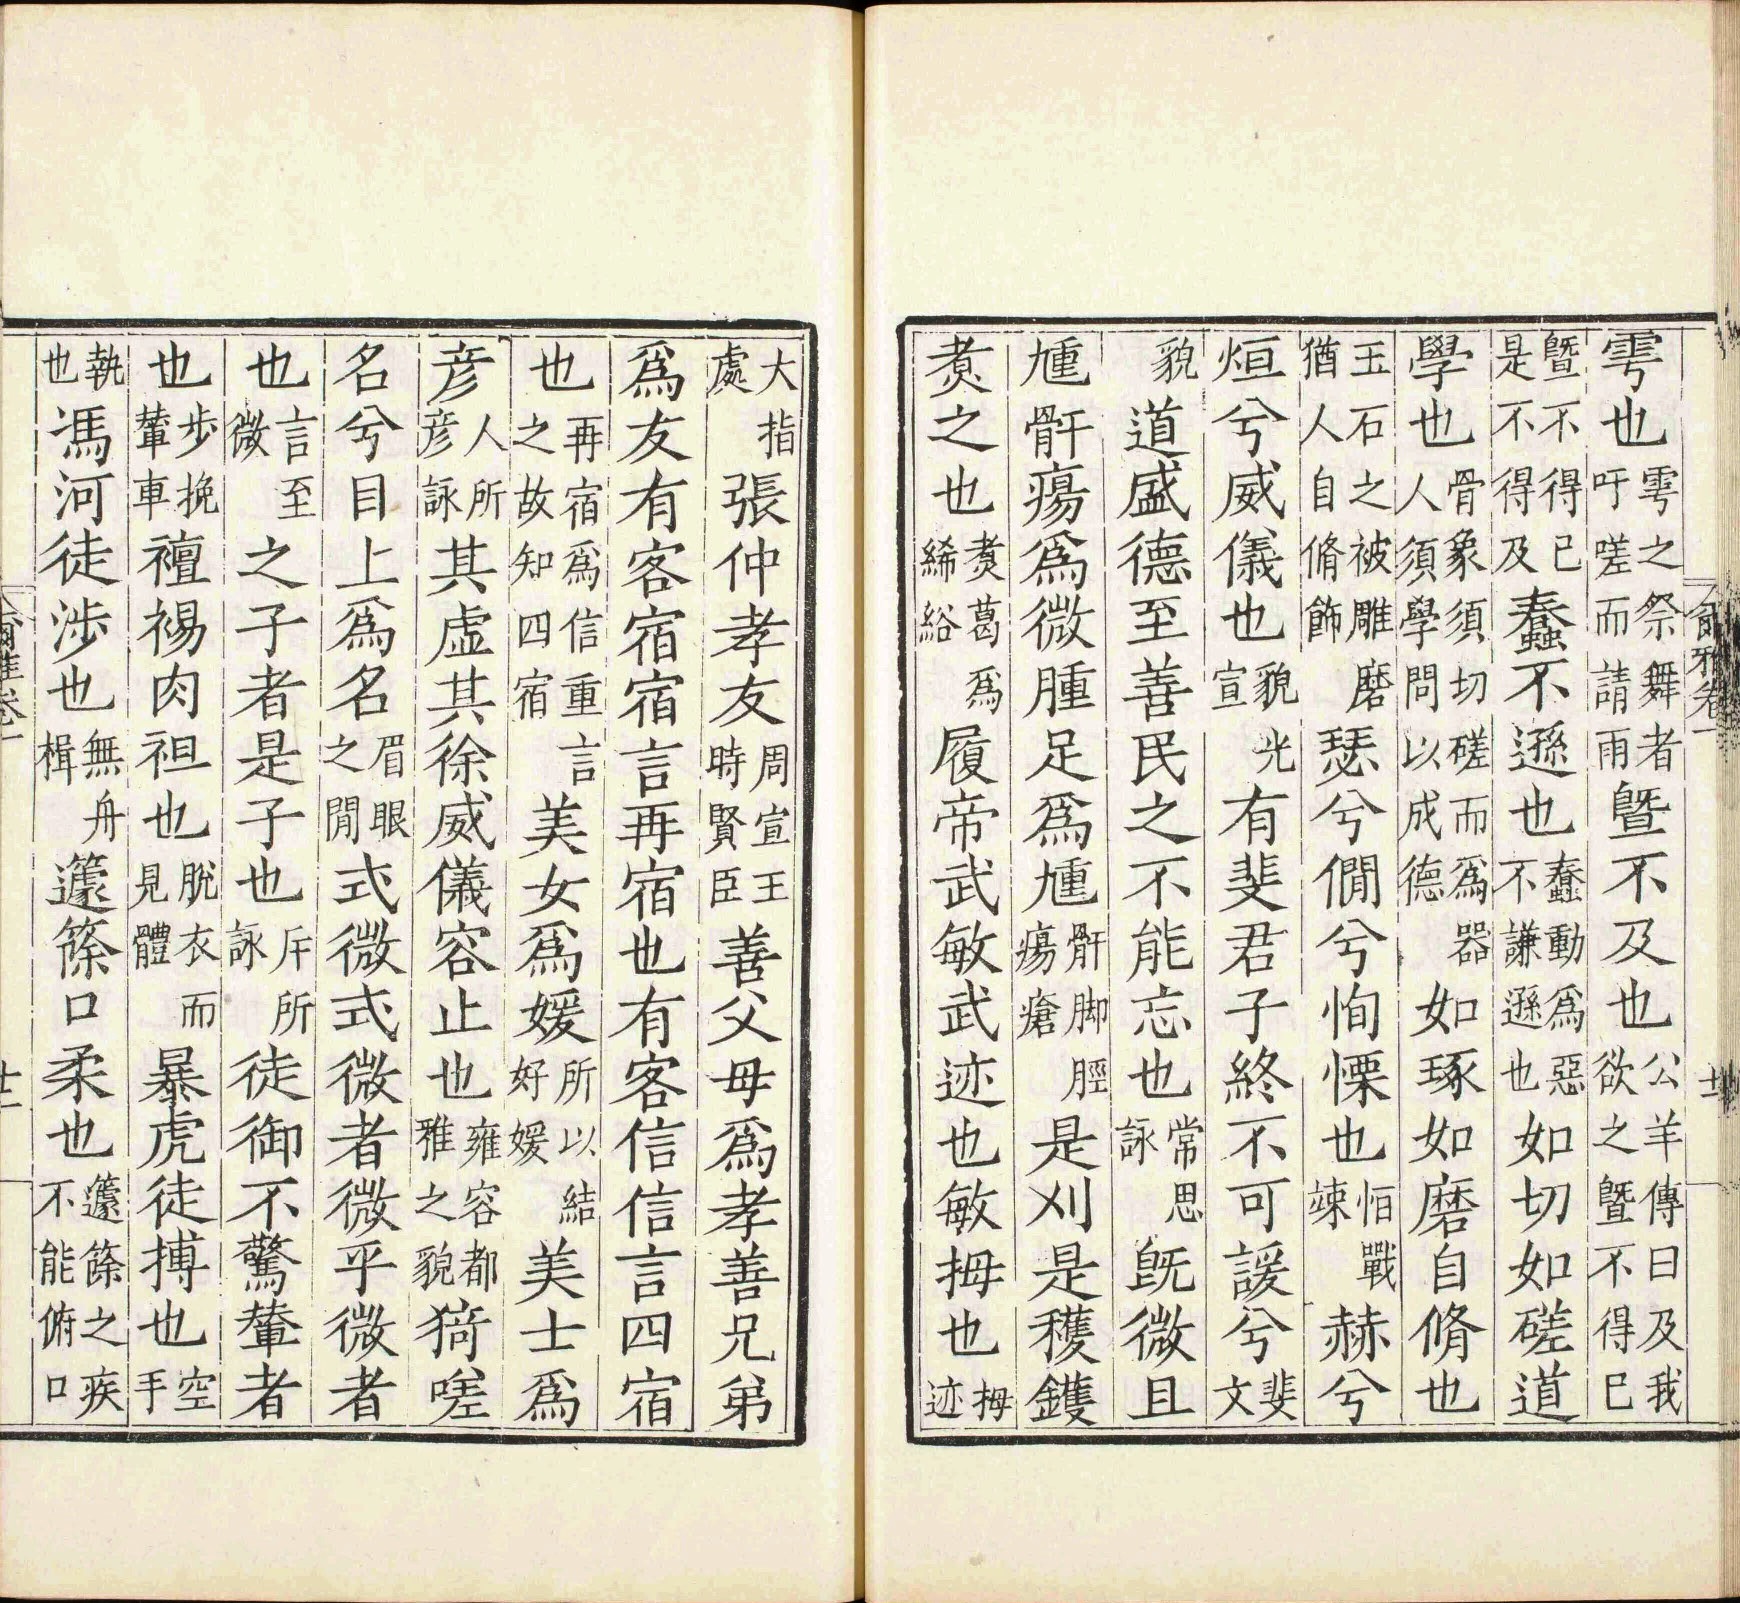 爾雅卷一　十一
雩也雩之祭舞者吁嗟而請雨曁不及也公羊傳曰及我欲之曁不得已
曁不得已是不得及蠢不遜也蠢動爲惡不謙遜也如切如磋道
學也骨象須切磋而爲器人須學問以成德如琢如磨自脩也
玉石之被雕磨猶人自脩飾瑟兮僩兮恂慄也恒戰竦赫兮
烜兮威儀也貌光宣有斐君子終不可諼兮斐文
貌道盛德至善民之不能忘也常思詠既微且
尰骭瘍爲微腫足爲尰骭脚脛瘍瘡是刈是穫鑊
煑之也煑葛爲絺綌履帝武敏武迹也敏拇也拇迹
大指處張仲孝友周宣王時賢臣善父母爲孝善兄弟
爲友有客宿宿言再宿也有客信信言四宿
也再宿爲信重言之故知四宿美女爲媛所以結好媛美士爲
彦人所彦詠其虛其徐威儀容止也雍容都雅之貌猗嗟
名兮目上爲名眉眼之閒式微式微者微乎微者
也言至微之子者是子也斥所詠徒御不驚輦者
也步挽輦車襢裼肉袒也脫衣而見體暴虎徒搏也空手
執也馮河徒涉也無舟楫籧篨口柔也籧篨之疾不能俯口
爾雅卷一　十二